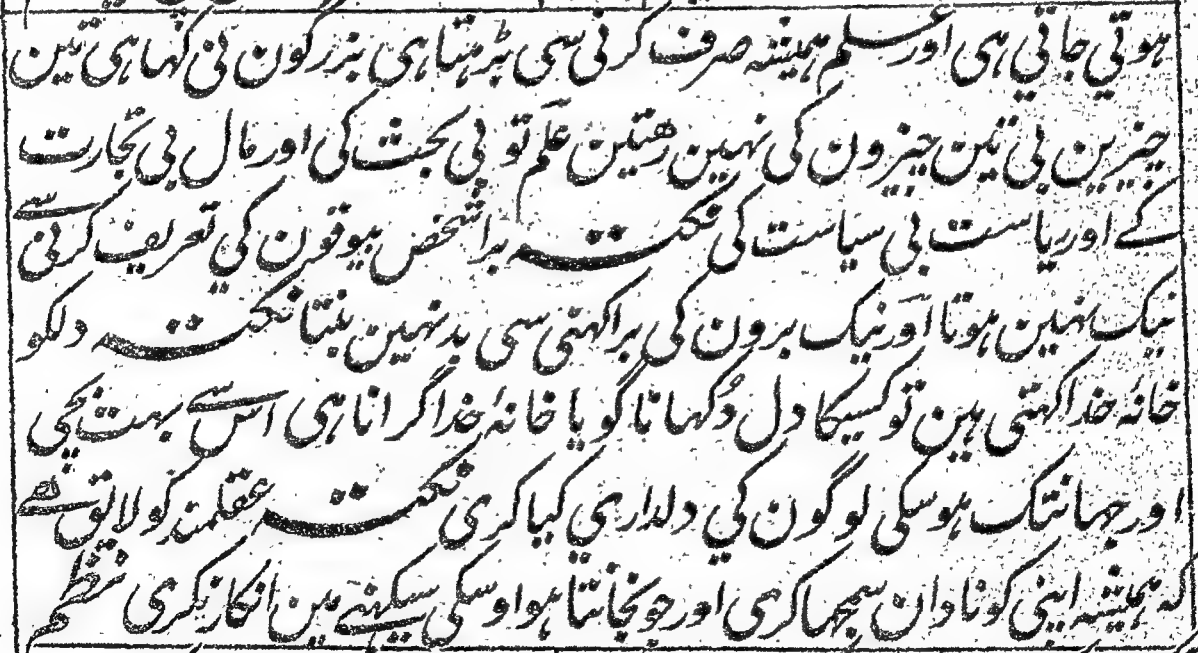 ہوتی جاتی ہی اور علم ہمیشہ صرف کرنی سی بڑہتا ہی بزرگون نی کہا ہی تین
چیزین بی تین چیزون کی نہین رہتین علم تو بی بحث کی اور مال بی تجارت
کے اور ریاست بی سیاست کی نکتہ برا شخص بیوقون کی تعریف کرنی سے
نیک نہین ہوتا اور نیک برون کی برا کہنی سی بد نہین بنتا نکتہ دلکو
خانۂ خدا کہتی ہین تو کسیکا دل دُکہانا گویا خانۂ خدا گرانا ہی اس سے بہت بچی
اور جہانتک ہوسکی لوگون کی دلداری کیا کری نکتہ عقلمند کو لائق ہے
کہ ہمیشہ اپنی کو نادان سمجہا کری اور جو نجانتا ہو اوسکی سیکہنے مین انکار نکری نظم